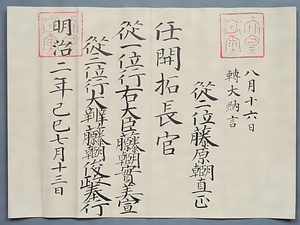 八月十六日
轉大納言
從二位藤原朝臣直正
任開拓長官
從一位行右大臣藤原朝臣實美宣
從三位行大辨藤原朝臣俊政奉行
明治二年己巳七月十三日